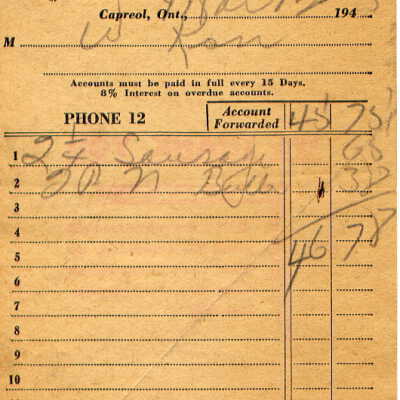 Capreol, Ont., 194
M W Ross
Accounts must be paid in full every 15 Days.
8% Interest on overdue accounts.
PHONE 12 Account Forwarded 45 75
1 2 1/4 Sausage 65
2 38
3
4 46 78
5
6
7
8
9
10